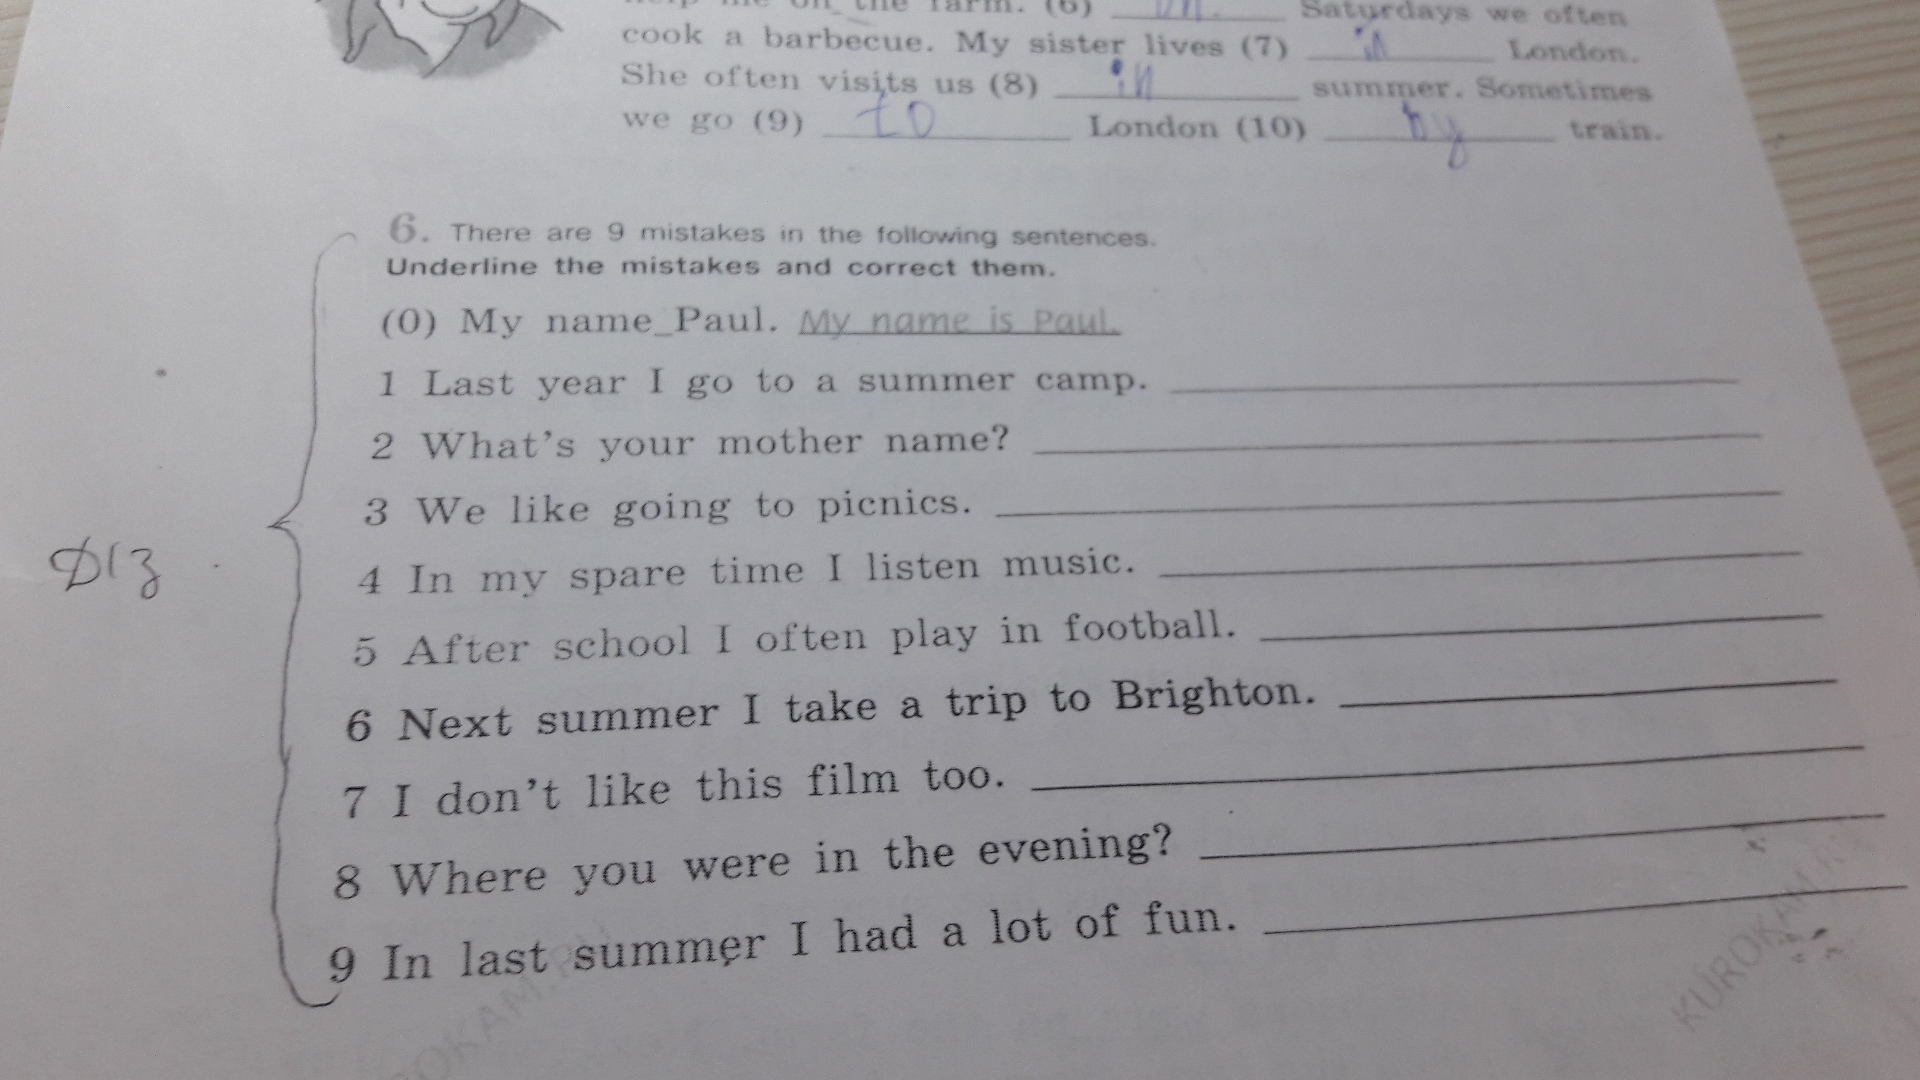 help me on the farm. (6) on. Saturdays we often
cook a barbecue. My sister lives (7) in London.
She often visits us (8) in summer. Sometimes
we go (9) to London (10) by train.
6. There are 9 mistakes in the following sentences.
Underline the mistakes and correct them.
(0) My name_Paul. My name is Paul.
1 Last year I go to a summer camp.
2 What's your mother name?
3 We like going to picnics.
4 In my spare time I listen music.
5 After school I often play in football.
6 Next summer I take a trip to Brighton.
7 I don't like this film too.
8 Where you were in the evening?
9 In last summer I had a lot of fun.
D/з
KUROKAM.RU